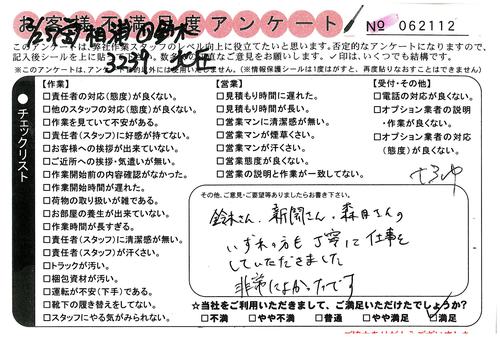 お客様不満足度アンケート
No 062112
このアンケートは、弊社作業スタッフのレベル向上に役立てたいと思います。否定的なアンケートになりますので、
3239
※このアンケートは、
(※情報保護シールは1度はがすと、再度貼りなおすことはできません)
チェックリスト
【作業】
□責任者の対応(態度)が良くない。
□他のスタッフの対応(態度)が良くない。
□作業を見ていて不安がある。
□責任者(スタッフ)に好感が持てない。
□お客様への挨拶が出来ていない。
□ご近所への挨拶・気遣いが無い。
□作業開始前の内容確認がなかった。
□作業開始時間が遅れた。
□荷物の取り扱いが雑である。
□お部屋の養生が出来ていない。
□作業時間が長すぎる。
□責任者(スタッフ)に清潔感が無い。
□責任者(スタッフ)が汗くさい。
□トラックが汚い。
□梱包資材が汚い。
□運転が不安(下手)である。
□靴下の履き替えをしてない。
□スタッフにやる気がみられない。
【営業】
□見積もり時間に遅れた。
□見積もり時間が長い。
□営業マンに清潔感が無い。
□営業マンが煙草くさい。
□営業マンが汗くさい。
□営業態度が良くない。
□営業の説明と作業が一致してない。
【受付・その他】
□電話の対応が良くない。
□オプション業者の説明
・作業が良くない。
□オプション業者の対応
(態度)が良くない。
その他、ご意見・ご要望等ありましたらお書き下さい。
鈴木さん、新関さん、森田さんの
いずれの方も丁寧に仕事を
していただきました
非常によかったです
☆当社をご利用いただきまして、ご満足いただけたでしょうか?
□不満 □やや不満 □普通 □やや満足 □満足